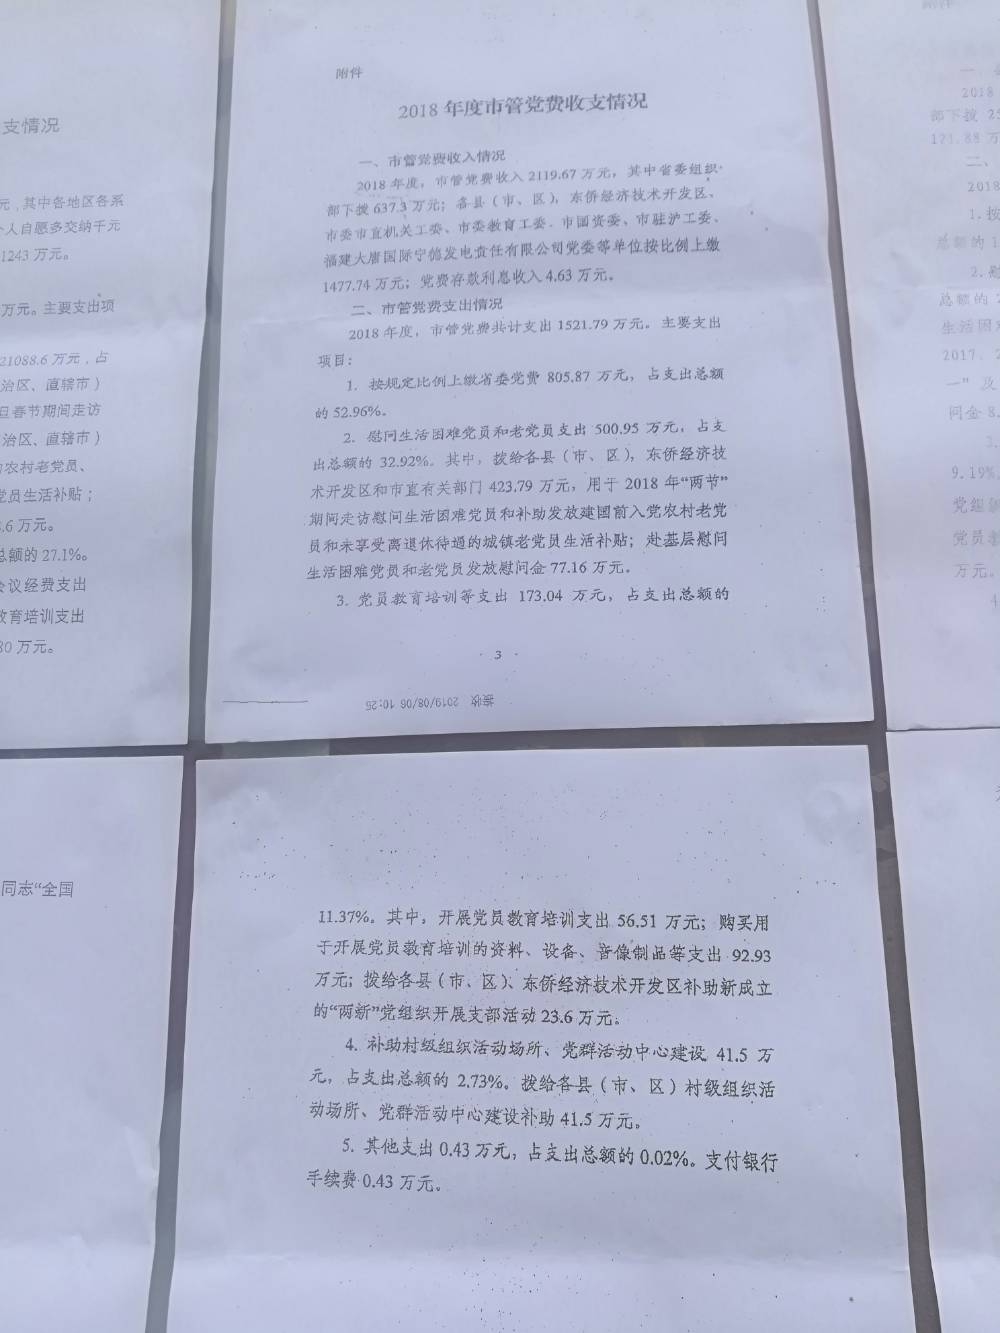 支情况
元，其中各地区各系
个人自愿多交纳千元
1243 万元。
万元。主要支出项
21088.6 万元，占
治区、直辖市）
旦春节期间走访
治区、直辖市）
农村老党员、
党员生活补贴；
.6 万元。
总额的 27.1%。
会议经费支出
教育培训支出
80 万元。
附件
2018 年度市管党费收支情况
一、市管党费收入情况
2018 年度，市管党费收入 2119.67 万元，其中省委组织
部下拨 637.3 万元；各县（市、区），东侨经济技术开发区、
市委市直机关工委、市委教育工委、市国资委、市驻沪工委、
福建大唐国际宁德发电责任有限公司党委等单位按比例上缴
1477.74 万元；党费存款利息收入 4.63 万元。
二、市管党费支出情况
2018 年度，市管党费共计支出 1521.79 万元。主要支出
项目：
1. 按规定比例上缴省委党费 805.87 万元，占支出总额
的 52.96%。
2. 慰问生活困难党员和老党员支出 500.95 万元，占支
出总额的 32.92%。其中，拨给各县（市、区），东侨经济技
术开发区和市直有关部门 423.79 万元，用于 2018 年“两节”
期间走访慰问生活困难党员和补助发放建国前入党农村老党
员和未享受离退休待遇的城镇老党员生活补贴；赴基层慰问
生活困难党员和老党员发放慰问金 77.16 万元。
3. 党员教育培训等支出 173.04 万元，占支出总额的
3
接收 2019/08/06 10:25
附件
一
2018
部下拨 25
121.88 万
二、
2018
1. 按
总额的 1
2. 慰
总额的 2
生活困难
2017、2
一”及
问金 8.
3.
9.19%
党组织
党员教
万元。
4
同志“全国
11.37%。其中，开展党员教育培训支出 56.51 万元；购买用
于开展党员教育培训的资料、设备、音像制品等支出 92.93
万元；拨给各县（市、区）、东侨经济技术开发区补助新成立
的“两新”党组织开展支部活动 23.6 万元。
4. 补助村级组织活动场所、党群活动中心建设 41.5 万
元，占支出总额的 2.73%。拨给各县（市、区）村级组织活
动场所、党群活动中心建设补助 41.5 万元。
5. 其他支出 0.43 万元，占支出总额的 0.02%。支付银行
手续费 0.43 万元。